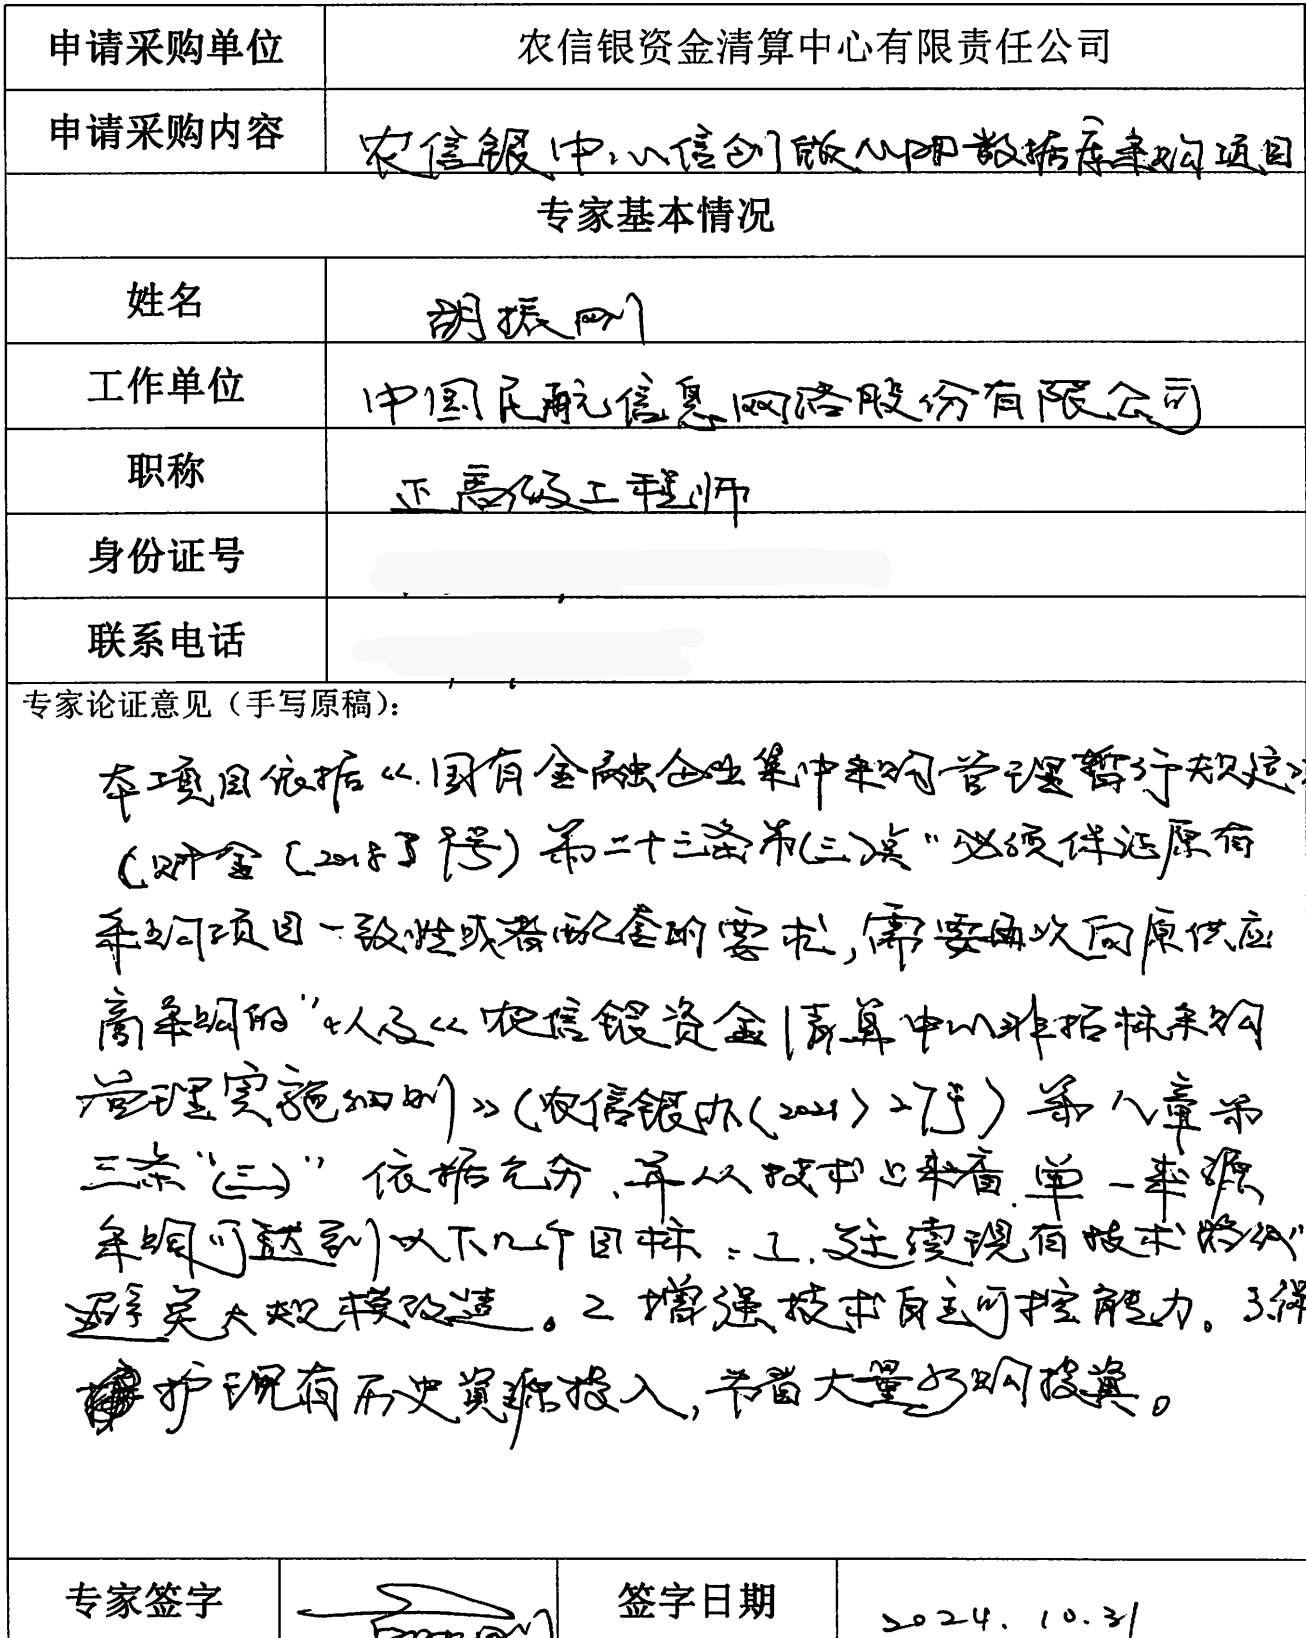 申请采购单位 农信银资金清算中心有限责任公司
申请采购内容 农信银中心信创版 数据库采购项目
专家基本情况
姓名 胡振刚
工作单位 中国民航信息网络股份有限公司
职称 正高级工程师
身份证号
联系电话
专家论证意见（手写原稿）：
本项目依据《国有金融企业集中采购管理暂行规定》
（财金〔2018〕9号）第二十三条第(三)项“必须保证原有
采购项目一致性或者配套的要求，需要再次向原供应
商采购的”以及《农信银资金清算中心非招标采购
管理实施细则》（农信银办〔2021〕27号）第八章第
三条“(三)”依据充分、并从技术上来看 单一来源
采购可达到以下几个目标：1. 延续现有技术路线
避免大规模改造。2 增强技术自主可控能力。3保
护现有历史资源投入，节省大量采购投资。
专家签字 签字日期 2024.10.31